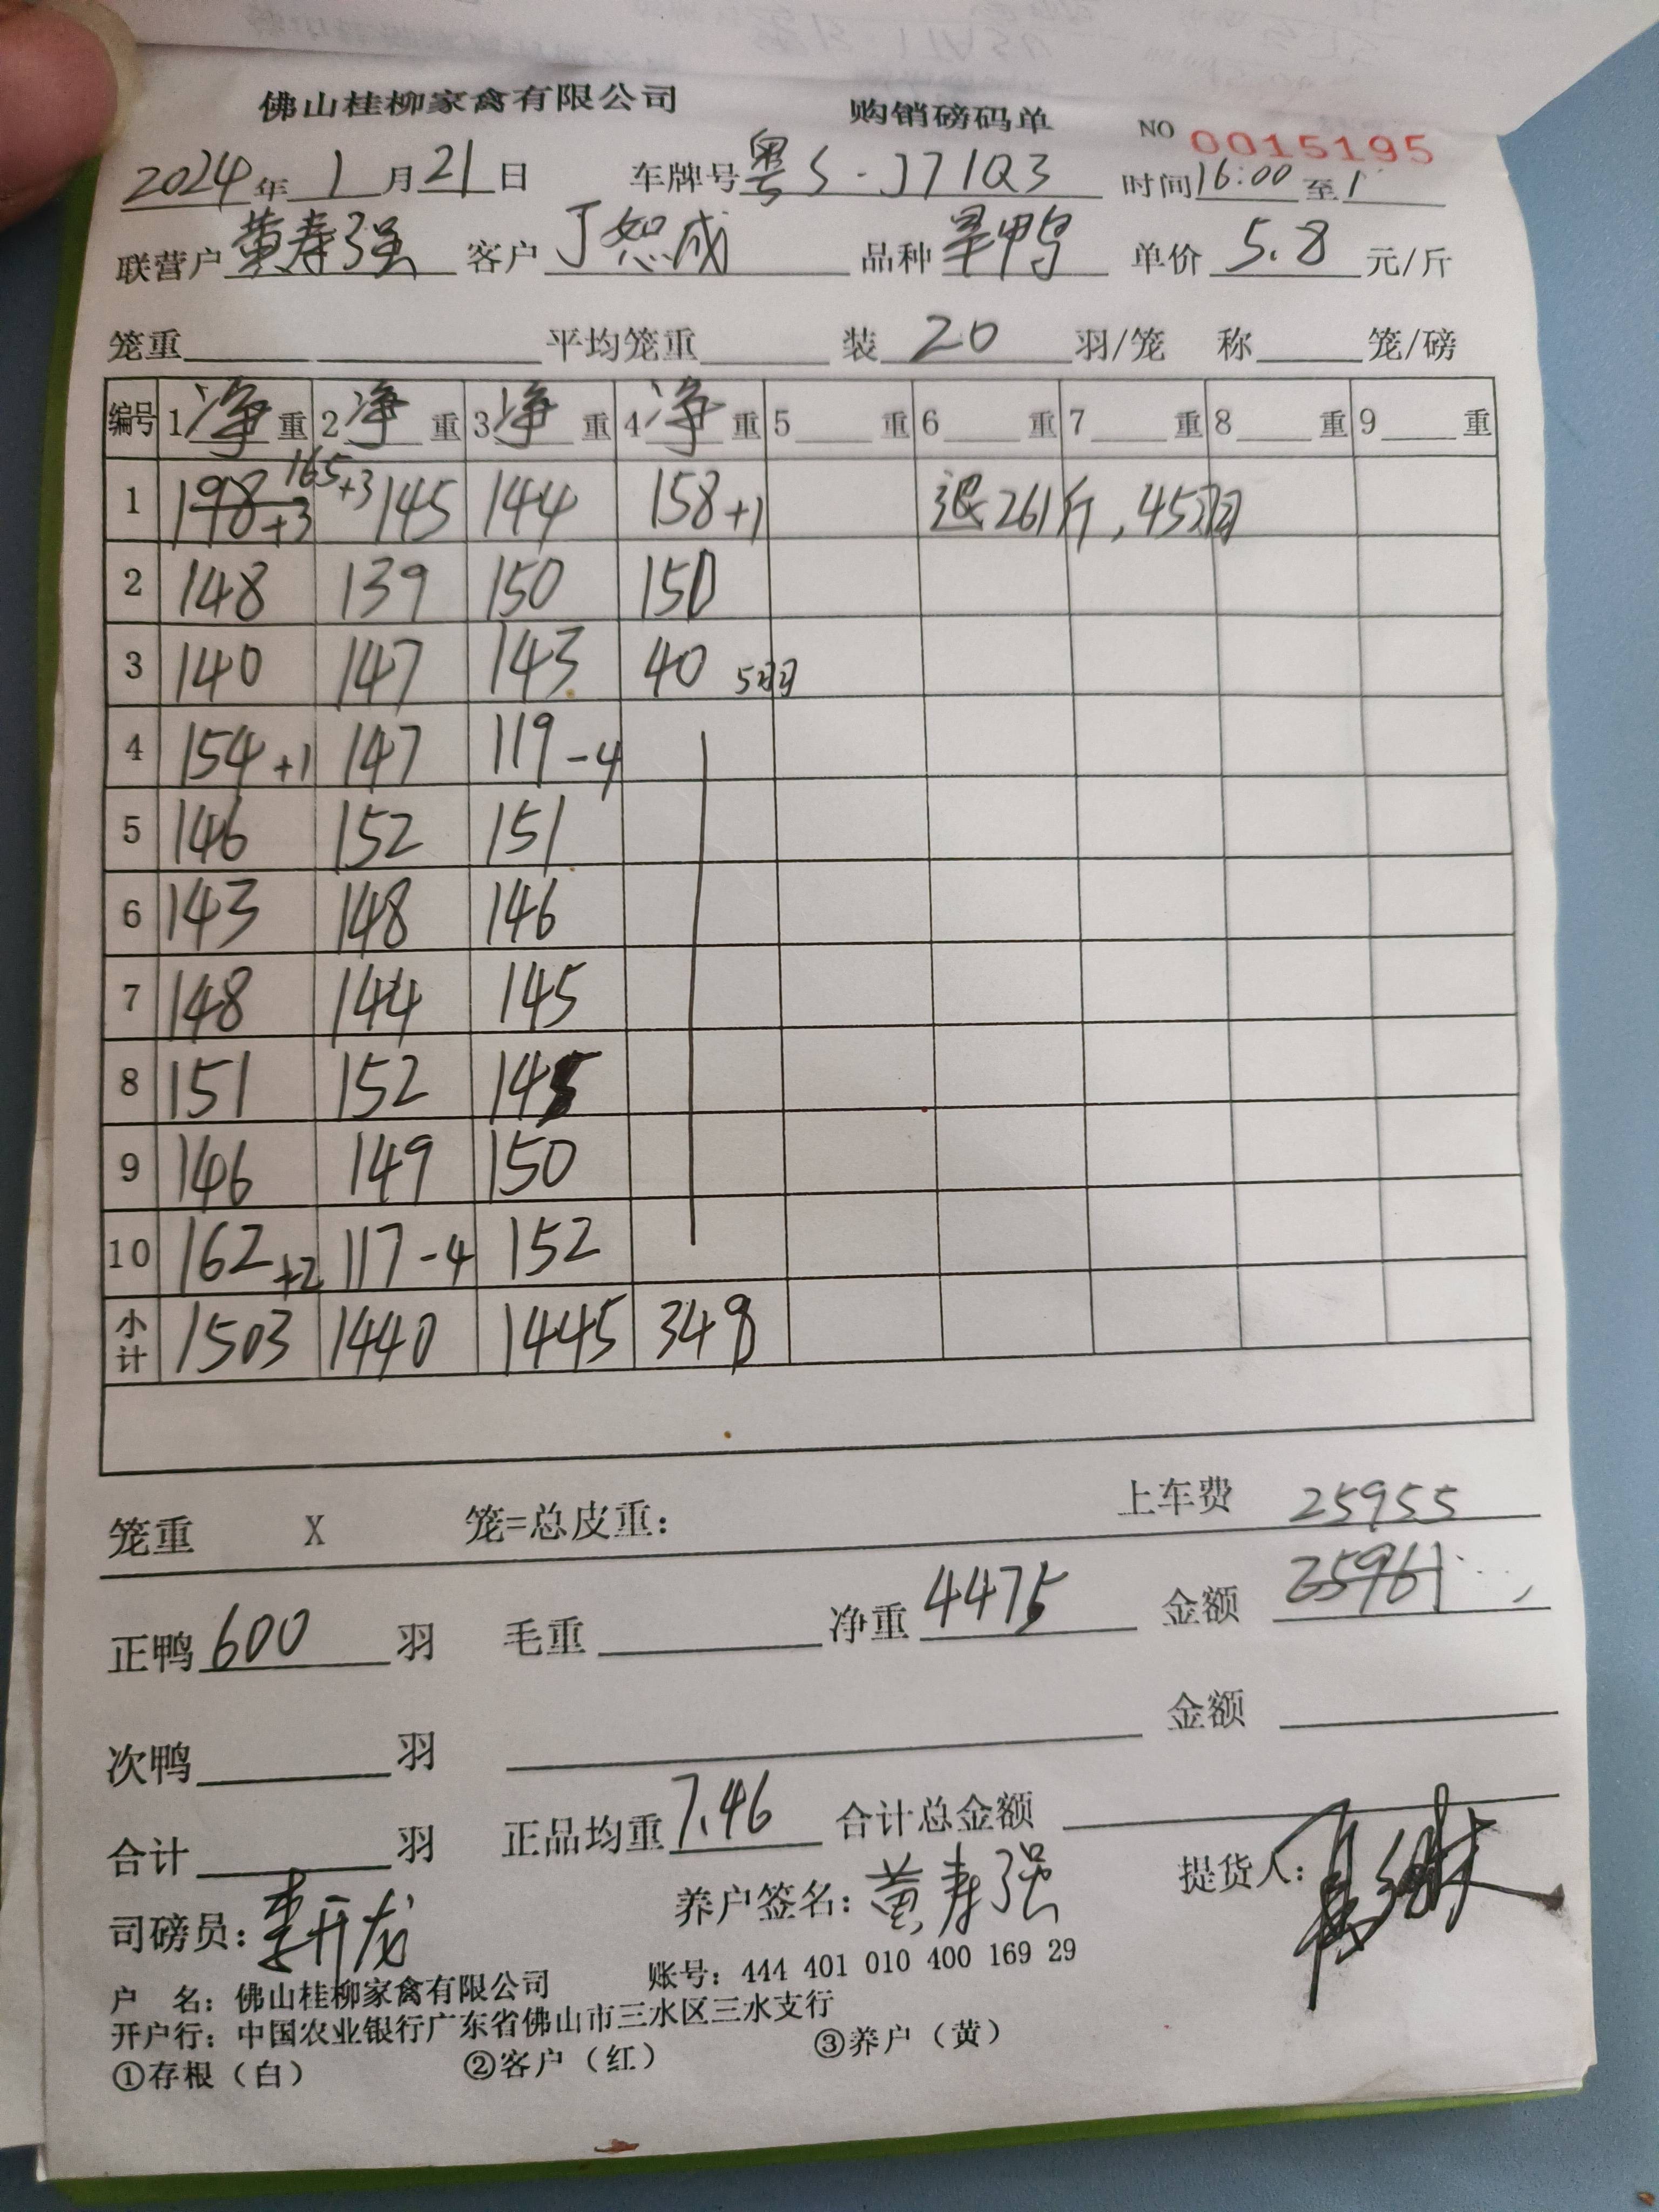 佛山桂柳家禽有限公司 购销磅码单 NO 0015195
2024年1月21日 车牌号粤S-J71Q3 时间16:00至1
联营户黄寿强 客户丁恕成 品种旱鸭 单价5.8元/斤
笼重 平均笼重 装20羽/笼 称 笼/磅
编号 1净重 2净重 3净重 4净重 5重 6重 7重 8重 9重
1 198+3 165+3 145 144 158+1 退261斤,45羽
2 148 139 150 150
3 140 147 143 40 5羽
4 154+1 147 119-4
5 146 152 151
6 143 148 146
7 148 144 145
8 151 152 145
9 146 149 150
10 162+2 117-4 152
小计 1503 1440 1445 348
笼重 X 笼=总皮重: 上车费 25955
正鸭600羽 毛重 净重4475 金额 25961
次鸭 羽 金额
合计 羽 正品均重7.46 合计总金额
司磅员:李开龙 养户签名:黄寿强 提货人:
户 名:佛山桂柳家禽有限公司 账号:444 401 010 400 169 29
开户行:中国农业银行广东省佛山市三水区三水支行
①存根(白) ②客户(红) ③养户(黄)